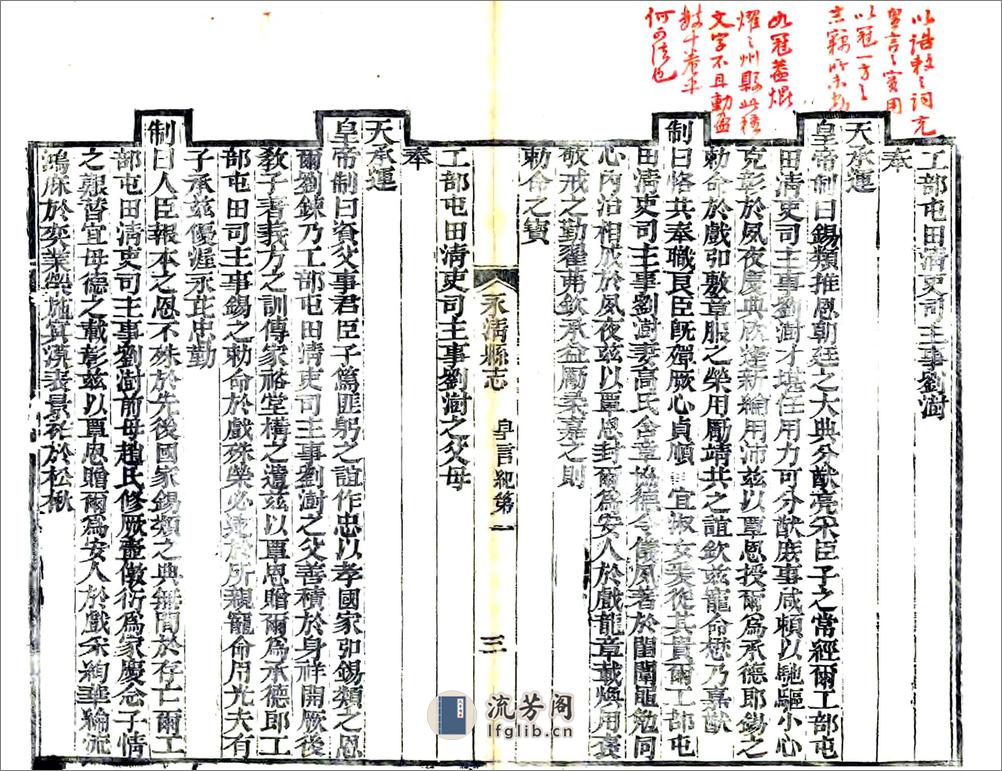 工部屯田清吏司主事劉澍
奉
天承運
皇帝制曰錫類推恩朝廷之大典分猷亮采臣子之常經爾工部屯
田清吏司主事劉澍才堪任用力可分猷庶事咸賴以馳驅小心
克彰於夙夜慶典欣逢新綸用沛茲以覃恩授爾為承德郎錫之
勅命於戲弘敷章服之榮用勵靖共之誼欽茲寵命懋乃嘉猷
制曰恪共奉職良臣既殫厥心貞順宜家淑女爰從其貴爾工部屯
田清吏司主事劉澍妻高氏含章協德令儀夙著於閨闈黽勉同
心內治相成於夙夜茲以覃恩封爾為安人於戲龍章載煥用褒
敬戒之勤翟茀欽承益勵柔嘉之則
勅命之寶
永清縣志 皇言紀第一 三
工部屯田清吏司主事劉澍之父母
奉
天承運
皇帝制曰資父事君臣子篤匪躬之誼作忠以孝國家弘錫類之恩
爾劉鍊乃工部屯田清吏司主事劉澍之父善積於身祥開厥後
教子著義方之訓傳家裕堂構之遺茲以覃恩贈爾為承德郎工
部屯田司主事錫之勅命於戲殊榮必逮於所親寵命用光夫有
子承茲優渥永芘忠勤
制曰人臣報本之恩不殊於先後國家錫類之典無間於存亡爾工
部屯田清吏司主事劉澍前母趙氏修厥壼儀衍為家慶念子情
之懇督宜母德之載彰茲以覃恩贈爾為安人於戲采絢華綸流
鴻庥於奕葉榮施冥漠表景祉於松楸
以誥敕之詞充
皇言之實用
以冠一方之
志竊所未為
如冠蓋焜
耀之州縣此種
文字不且動盈
數十卷乎
何可法也
流芳阁
lfglib.cn